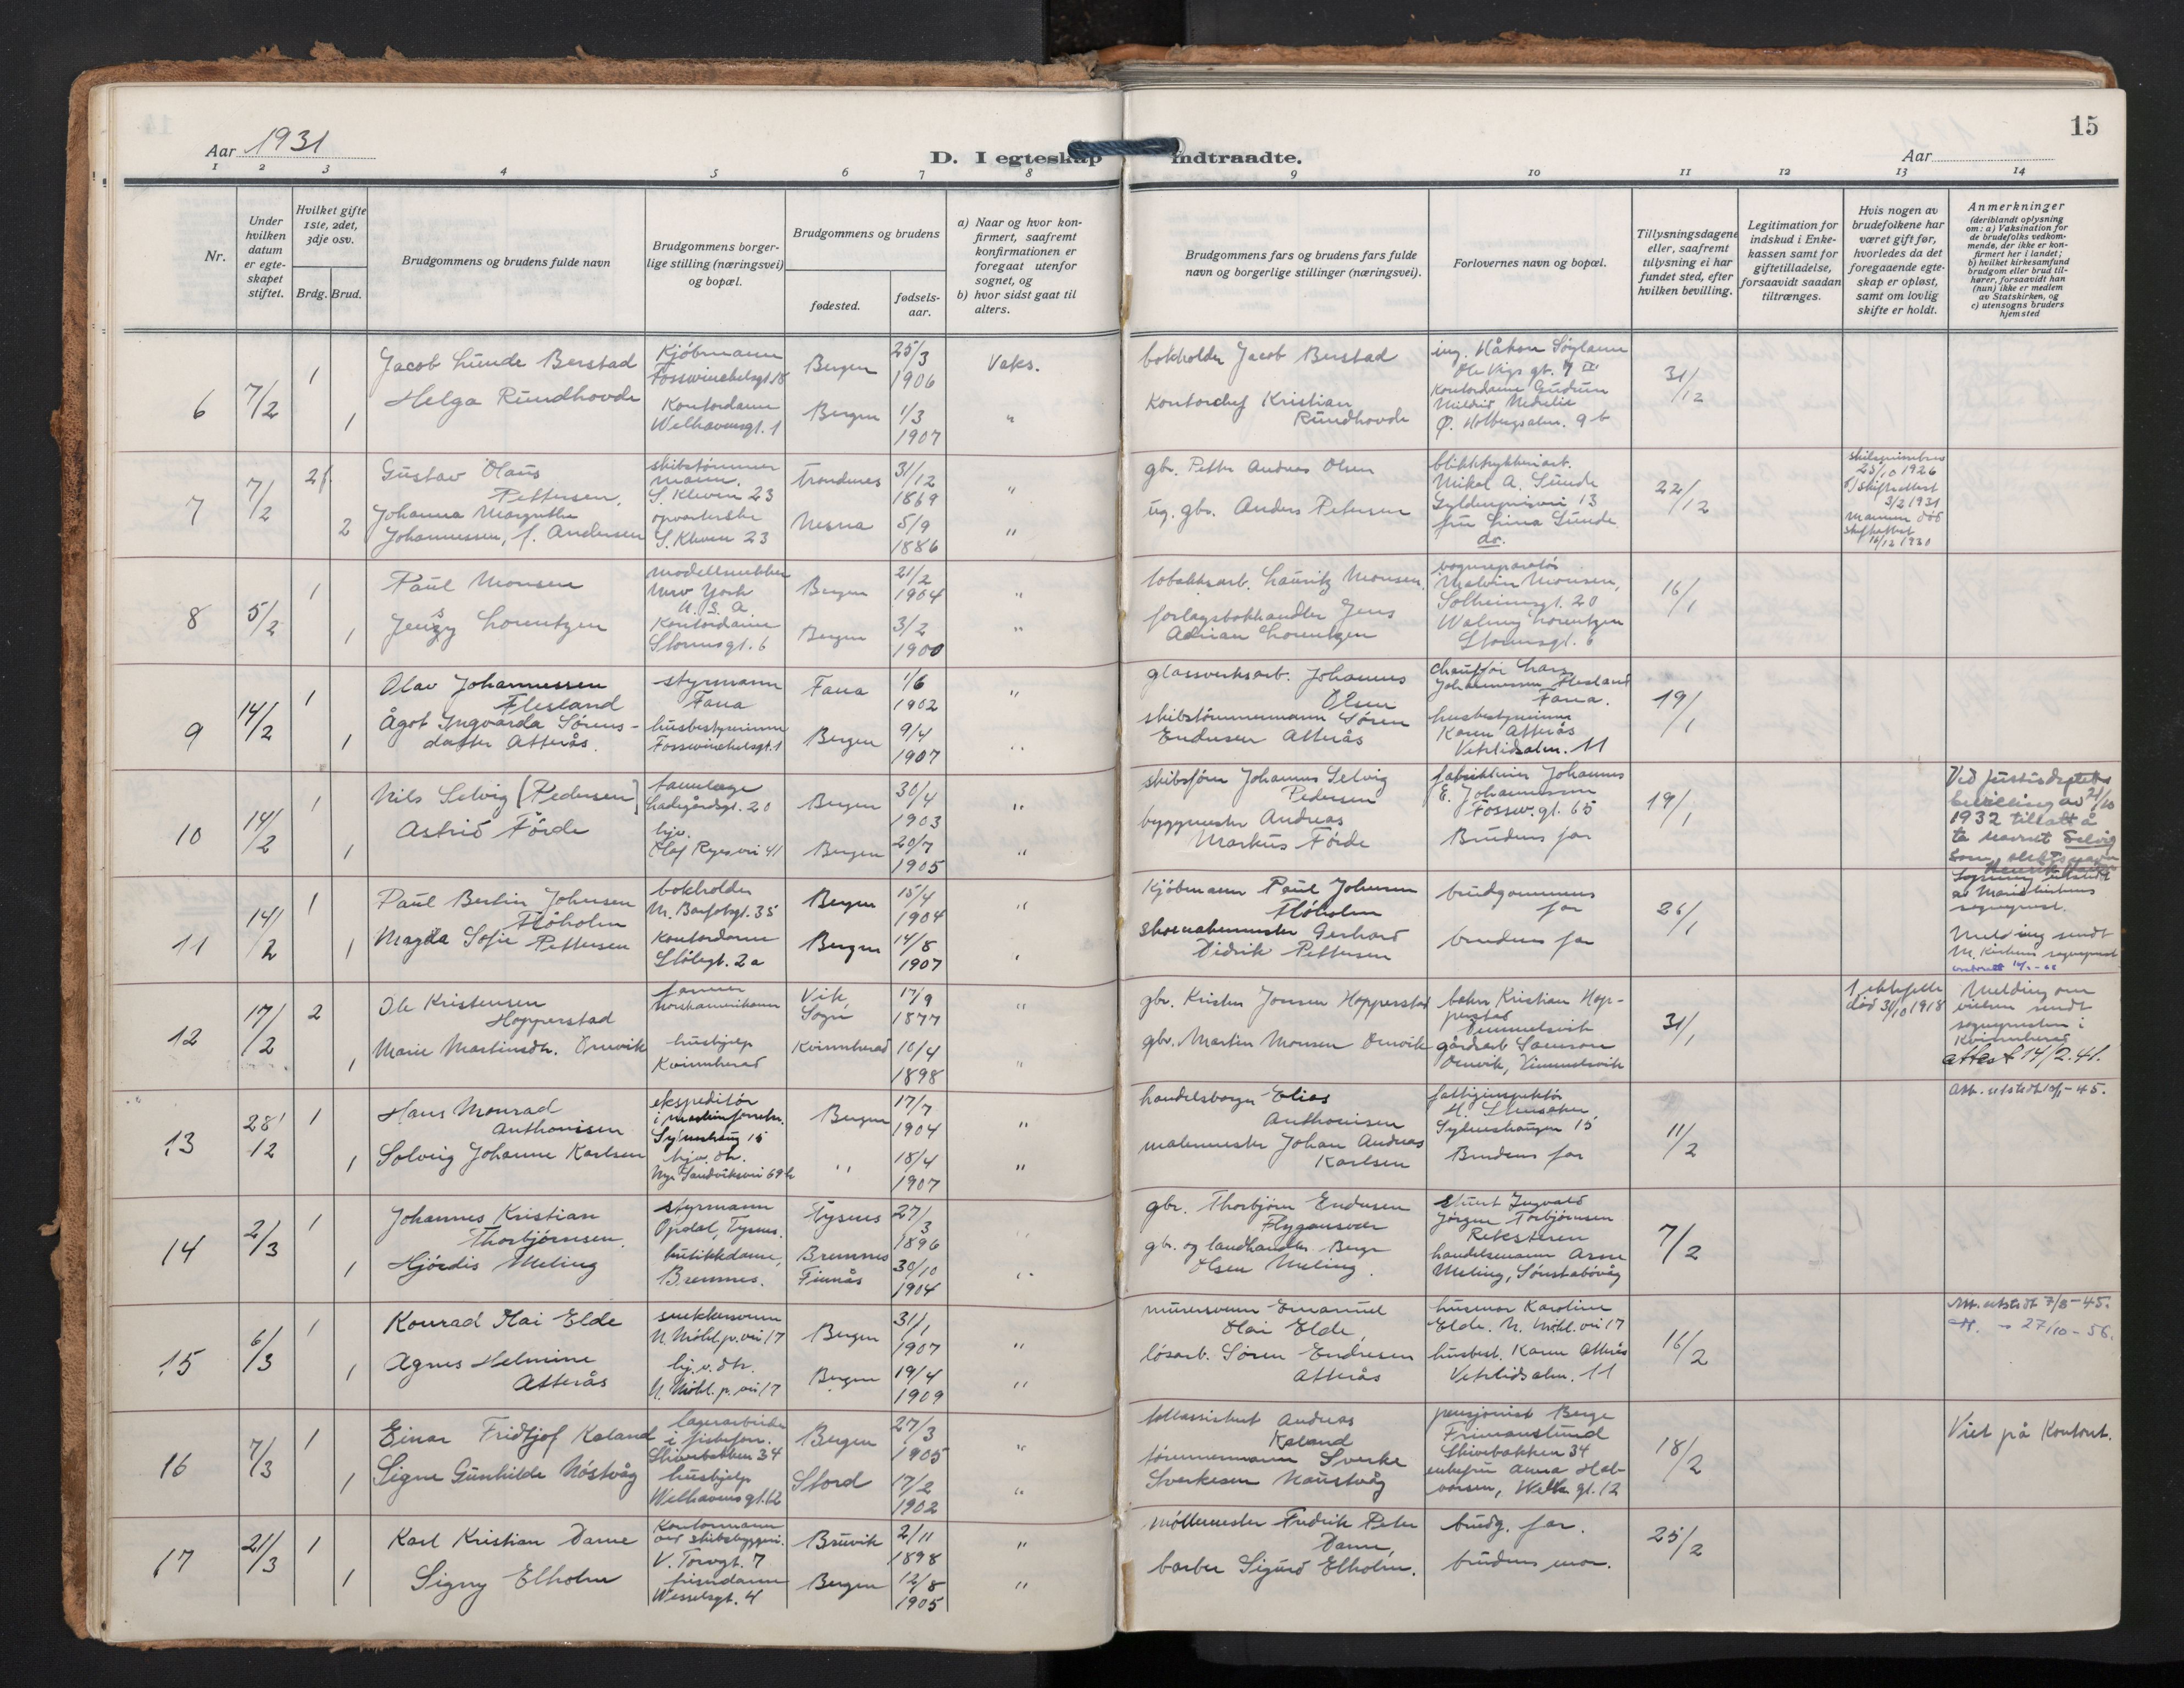 15
Aar 1931
D. I egteskap indtraadte.
Aar
1 2 3 4 5 6 7 8 9 10 11 12 13 14
Nr.
Under hvilken datum er egte-skapet stiftet.
Hvilket gifte 1ste, 2det, 3dje osv.
Brdg. Brud.
Brudgommens og brudens fulde navn
Brudgommens borger-
lige stilling (næringsvei)
og bopæl.
Brudgommens og brudens
fødested.
fødsels-
aar.
a) Naar og hvor kon-
firmert, saafremt
konfirmationen er
foregaat utenfor
sognet, og
b) hvor sidst gaat til
alters.
Brudgommens fars og brudens fars fulde
navn og borgerlige stillinger (næringsvei).
Forlovernes navn og bopæl.
Tillysningsdagene
eller, saafremt
tillysning ei har
fundet sted, efter
hvilken bevilling.
Legitimation for
indskud i Enke-
kassen samt for
giftetilladelse,
forsaavidt saadan
tiltrænges.
Hvis nogen av
brudefolkene har
været gift før,
hvorledes da det
foregaaende egte-
skap er opløst,
samt om lovlig
skifte er holdt.
Anmerkninger
(deriblandt oplysning
om: a) Vaksination for
de brudefolks vedkom-
mende, der ikke er kon-
firmert her i landet;
b) hvilket kirkesamfund
brudgom eller brud til-
hører, forsaavidt han
(hun) ikke er medlem
av Statskirken, og
c) utensogns bruders
hjemsted
6 7/2 1 Jacob Lunde Berstad Kjöbmann Fosswinckelsgt. 18 Bergen 25/3 1906 Vaks.
1 Helga Rundhovde Kontordame Welhavensgt. 1 Bergen 1/3 1907 "
bokholder Jacob Berstad ing. Håkon Söyland Ole Vigs gt. 7 III 31/12
Kontorchef Kristian Rundhovde Kontordame Gudrun Mildrid Nedrelie Ø. Holbergsalm. 9 b
7 7/2 2 f. Gustav Olaus Pettersen, skibstömmermann, S. Kleven 23 Trondenes 31/12 1869 "
2 Johanna Margrethe Johannessen, f. Andersen opvarterske S. Kleven 23 Nesna 5/9 1886 "
gbr. Petter Andreas Olsen Mikal A. Lunde Gyldenprisvei 13 22/12
ug. gbr. Anders Petersen fru Lina Lunde do.
25/10 1926 skifteattest 3/2 1931 mannen död skifteattest 16/12 1930
8 5/2 1 Paul Monsen modellsnekker New York U.S.A. Bergen 21/2 1904 "
1 Jenny Lorentzen Kontordame Stormsgt. 6 Bergen 3/2 1900 "
tobakksarb. Lauritz Monsen. vognreparatör Malvin Monsen, Solheimsgt. 20 16/1
forlagsbokhandler Jens Adrian Lorentzen Lorentzen Stormsgt. 6
9 14/2 1 Olav Johannessen Flesland styrmann Fana Fana 1/6 1902 "
1 Ågot Ingvarda Sörens-datter Atterås. husbestyrerinne Fosswinckelsgt. 1 Bergen 9/4 1907 "
glassverksarb. Johannes Olsen chauffør Lars Johannessen Flesland Fana. 19/1
skibstömmermann Sören Endresen Atterås husbestyrerinne Karen Atterås Vetrlidsalm. 11
10 14/2 1 Nils Selvig (Pedersen) tannlæge Ladegårdsgt. 20 Bergen 30/4 1903 "
1 Astrid Förde hjv. Olaf Ryes vei 41 Bergen 20/7 1905 "
skibsförer Johannes Selvig Pedersen fabrikeier Johannes E. Johannessen Fossw. gt. 65 19/1
byggmester Andreas Markus Förde Brudens far
Ved Justisdeptets bevilling av 21/10 1932 tillatt å ta navnet Selvig som slektsnavn
11 14/2 1 Paul Bertin Johnsen Flöholm bokholder M. Barfotsgt. 35 Bergen 15/4 1904 "
1 Magda Sofie Pettersen Kontordame Stölegt. 2a Bergen 14/8 1907 "
Kjöbmann Paul Johnsen Flöholm brudgommens far 26/1
skomakermester Gerhard Didrik Pettersen brudens far
av Mariekirkens sogneprest.
Melding sendt M. Kirkens sogneprest
12 17/2 2 Ole Kristensen Hopperstad farmer Norskamerikaner Vik, Sogn 17/9 1877 "
1 Marie Martinsdtr. Omvik hushjelp Kvinnherad Kvinnherad 10/4 1898 "
gbr. Kristen Jonsen Hopperstad Kristian Hopperstad 31/1
gbr. Martin Monsen Omvik gårdarb Samson Omvik,
1 ektefelle död 31/10 1918
Melding om vielsen sendt sognepresten i Kvinnherad attest 14/2.41.
13 28/12 1 Hans Monrad Anthonisen ekspeditör Sydneshaug 15 Bergen 17/7 1904 "
1 Solveig Johanne Karlsen hjv. dtr. Nye Sandviksvei 69 b " 18/4 1907 "
handelsborger Elias Anthonisen fattiginspektör Sydneshaugen 15 11/2
malermester Johan Andreas Karlsen Brudens far
Att. utstedt 10/1-45.
14 2/3 1 Johannes Kristian Thorbjörnsen. styrmann Opdal, Tysnes. Tysnes 27/3 1896 "
1 Hjördis Meling butikkdame, Bremnes. Bremnes Finnås 30/10 1904 "
gbr. Thorbjörn Endresen Flygansvær Ingvald Jörgen Torbjörnsen Reksteren 7/2
gbr. og landhandler Berge Olsen Meling. handelsmann Arne Meling, Sönstabövåg
15 6/3 1 Konrad Hai Elde snekkersvenn N. Möhl.p.vei 17 Bergen 31/1 1907 "
1 Agnes Helmine Atterås hj.v. dtr. N. Möhl. p. vei 17 Bergen 19/4 1909 "
murersvenn Emanuel Hai Elde, husmor Karoline Elde. N. Möhl. vei 17 16/2
lösarb. Sören Endresen Atterås husbest. Karen Atterås Vetrlidsalm. 11
Att. utstedt 7/8-45.
Att. " 27/10-56.
16 7/3 1 Einar Fridtjof Kaland lagerarbeider i fiskeforr. Skivebakken 34 Bergen 27/3 1905 "
1 Signe Gunhilde Nöstvåg hushjelp Welhavensgt. 62 Stord 17/2 1902 "
tollassistent Andreas Kaland pensjonist Berge Skivebakken 34 18/2
tömmermann Sverke Sverkesen Naustvåg enkefru Anna Halvorsen, Welh. gt. 12
Viet på Kontoret.
17 21/3 1 Karl Kristian Dame Kontormann V. Torvgt. 7 Bruvik 2/11 1898 "
1 Signy Elholm frisördame Wesselsgt. 4 Bergen 12/8 1905 "
möllemester Fredrik Peter Damm, brudg. far. 25/2
barber Sigurd Elholm. brudens mor.